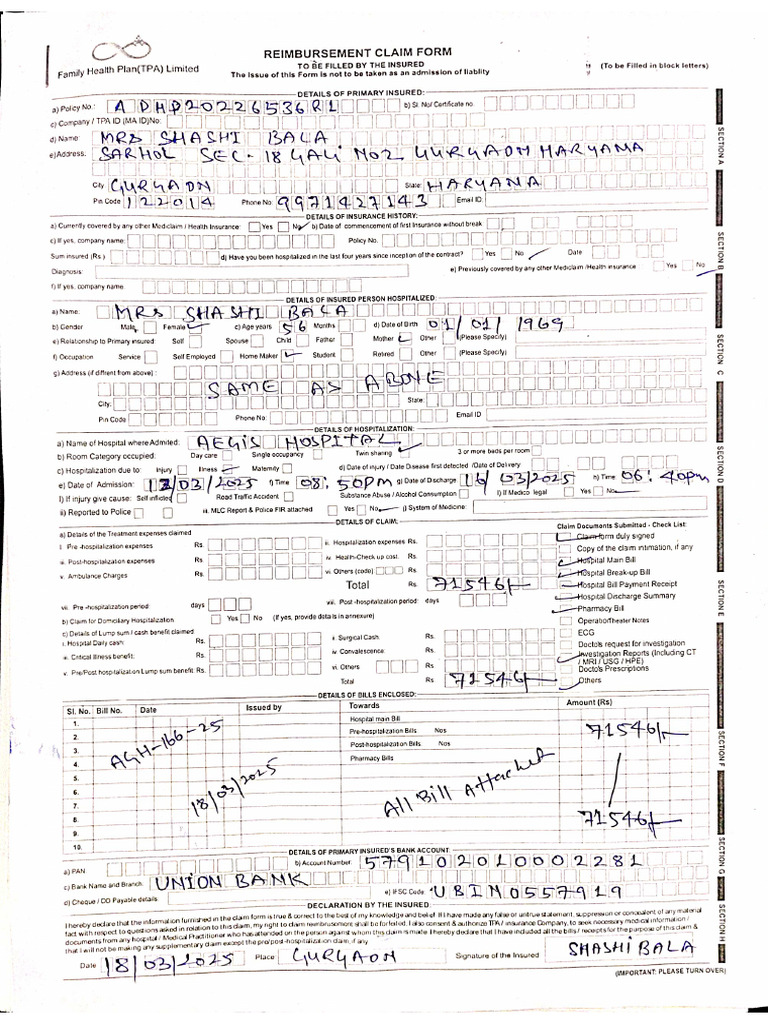 REIMBURSEMENT CLAIM FORM
TO BE FILLED BY THE INSURED
(To be Filled in block letters)
Family Health Plan(TPA) Limited
The issue of this Form is not to be taken as an admission of liablity
DETAILS OF PRIMARY INSURED:
a) Policy No.: ADHP20226536R1 b) Sl. No/ Certificate no
c) Company / TPA ID (MA ID)No:
d) Name: MRS SHASHI BALA
e) Address: SARHOL SEC-18 GALI NO2 GURGAON HARYANA
City GURGAON State: HARYANA
Pin Code 122014 Phone No: 9971427143 Email ID:
SECTION A
DETAILS OF INSURANCE HISTORY:
a) Currently covered by any other Mediclaim / Health Insurance: Yes No b) Date of commencement of first Insurance without break
c) If yes, company name: Policy No.
Sum insured (Rs.) d) Have you been hospitalized in the last four years since inception of the contract? Yes No Date
Diagnosis: e) Previously covered by any other Mediclaim /Health insurance Yes No
f) If yes, company name:
SECTION B
DETAILS OF INSURED PERSON HOSPITALIZED:
a) Name: MRS SHASHI BALA
b) Gender Male Female c) Age years 56 Months d) Date of Birth 01/01/1969
e) Relationship to Primary insured: Self Spouse Child Father Mother Other (Please Specify)
f) Occupation Service Self Employed Home Maker Student Retired Other (Please Specify)
g) Address (if diffrent from above) :
SAME AS ABOVE
City: State:
Pin Code Phone No: Email ID
SECTION C
DETAILS OF HOSPITALIZATION:
a) Name of Hospital where Admited: AEGIS HOSPITAL
b) Room Category occupied: Day care Single occupancy Twin sharing 3 or more beds per room
c) Hospitalization due to: Injury Illness Maternity d) Date of injury / Date Disease first detected /Date of Delivery
e) Date of Admission: 12/03/2025 f) Time 08:50PM g) Date of Discharge 16/03/2025 h) Time 06:40pm
I) If injury give cause: Self inflicted Road Traffic Accident Substance Abuse / Alcohol Consumption I) If Medico legal Yes No
ii) Reported to Police iii. MLC Report & Police FIR attached Yes No j) System of Medicine:
SECTION D
DETAILS OF CLAIM:
a) Details of the Treatment expenses claimed
i. Pre -hospitalization expenses Rs. ii. Hospitalization expenses Rs.
iii. Post-hospitalization expenses Rs. iv. Health-Check up cost. Rs.
v. Ambulance Charges Rs. vi. Others (code): Rs.
Total Rs. 71546/-
vii. Pre -hospitalization period: days viii. Post -hospitalization period: days
b) Claim for Domiciliary Hospitalization: Yes No (If yes, provide details in annexure)
c) Details of Lump sum / cash benefit claimed
i. Hospital Daily cash: Rs. ii. Surgical Cash: Rs.
iii. Critical Illness benefit: Rs. iv. Convalescence: Rs.
v. Pre/Post hospitalization Lump sum benefit: Rs. vi. Others Rs.
Total Rs 71546/-
Claim Documents Submitted - Check List:
Claim form duly signed
Copy of the claim intimation, if any
Hospital Main Bill
Hospital Break-up Bill
Hospital Bill Payment Receipt
Hospital Discharge Summary
Pharmacy Bill
Operation Theater Notes
ECG
Docto's request for investigation
Investigation Reports (Including CT / MRI / USG / HPE)
Docto's Prescriptions
Others
SECTION E
DETAILS OF BILLS ENCLOSED:
Sl. No. Bill No. Date Issued by Towards Amount (Rs)
1. Hospital main Bill
2. Pre-hospitalization Bills Nos 71546/-
3. AGH-166-25 Post-hospitalization Bills Nos
4. Pharmacy Bills
5.
6.
7. 18/03/2025 All Bill Attached
8. 71546/-
9.
10.
SECTION F
DETAILS OF PRIMARY INSURED'S BANK ACCOUNT:
a) PAN: b) Account Number: 579102010002281
c) Bank Name and Branch: UNION BANK
d) Cheque / DD Payable details e) IFSC Code: UBIN0557919
SECTION G
DECLARATION BY THE INSURED:
I hereby declare that the information furnished in the claim form is true & correct to the best of my knowledge and belief. If I have made any false or untrue statement, suppression or concealment of any material
fact with respect to questions asked in relation to this claim, my right to claim reimbursement shall be forfeited. I also consent & authorize TPA / insurance Company, to seek necessary medical information /
documents from any hospital / Medical Practitioner who has attended on the person against whom this claim is made. I hereby declare that I have included all the bills / receipts for the purpose of this claim &
that I will not be making any supplementary claim except the pre/post-hospitalization claim, if any
Date 18/03/2025 Place GURGAON Signature of the Insured SHASHI BALA
SECTION H
(IMPORTANT: PLEASE TURN OVER)